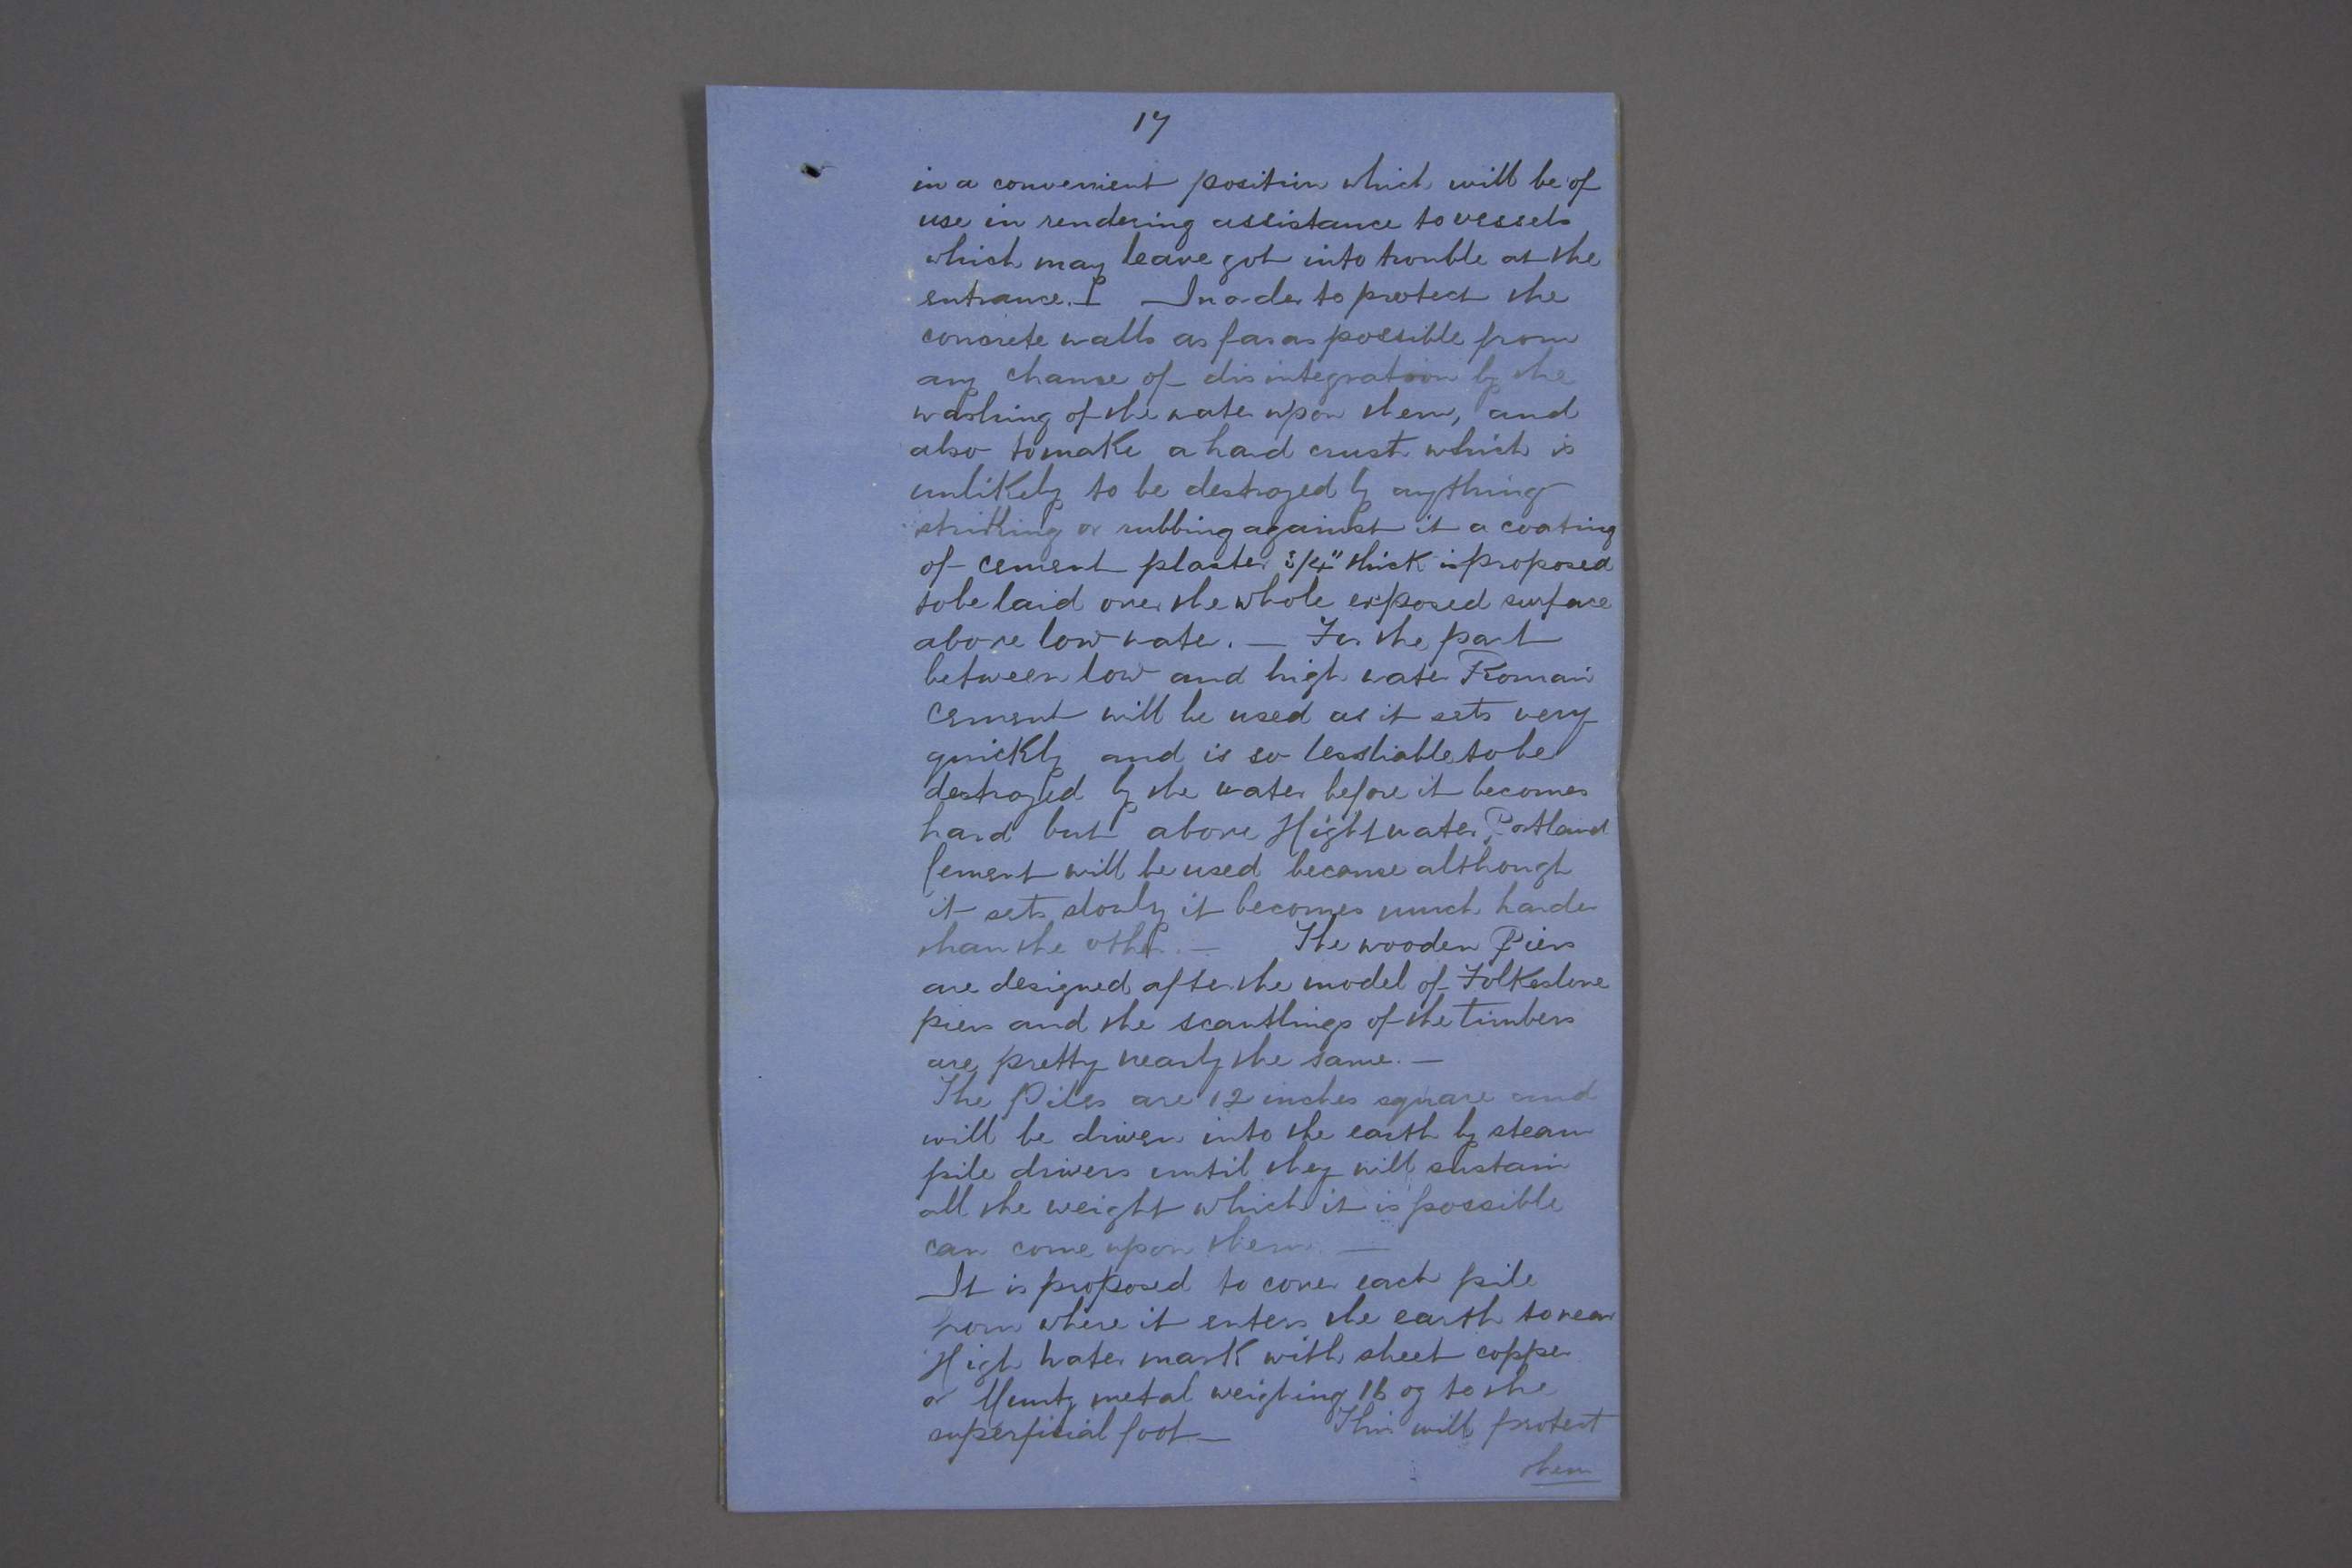 17
in a convenient position which will be of
use in rendering assistance to vessels
which may have got into trouble at the
entrance. I In order to protect the
concrete walls as far as possible from
any chance of disintegration by the
washing of the water upon them, and
also to make a hard crust which is
unlikely to be destroyed by anything
striking or rubbing against it a coating
of cement plaster 3/4" thick is proposed
to be laid over the whole exposed surface
above low water. — For the part
between low and high water Roman
cement will be used as it sets very
quickly and is so less liable to be
destroyed by the water before it becomes
hard but above High water Portland
Cement will be used because although
it sets slowly it becomes much harder
than the other. — The wooden Piers
are designed after the model of Folkestone
piers and the scantlings of the timbers
are pretty nearly the same. —
The Piles are 12 inches square and
will be driven into the earth by steam
pile drivers until they will sustain
all the weight which it is possible
can come upon them. —
It is proposed to cover each pile
from where it enters the earth to near
High water mark with sheet copper
or Muntz metal weighing 16 oz to the
superficial foot — This will protect
them